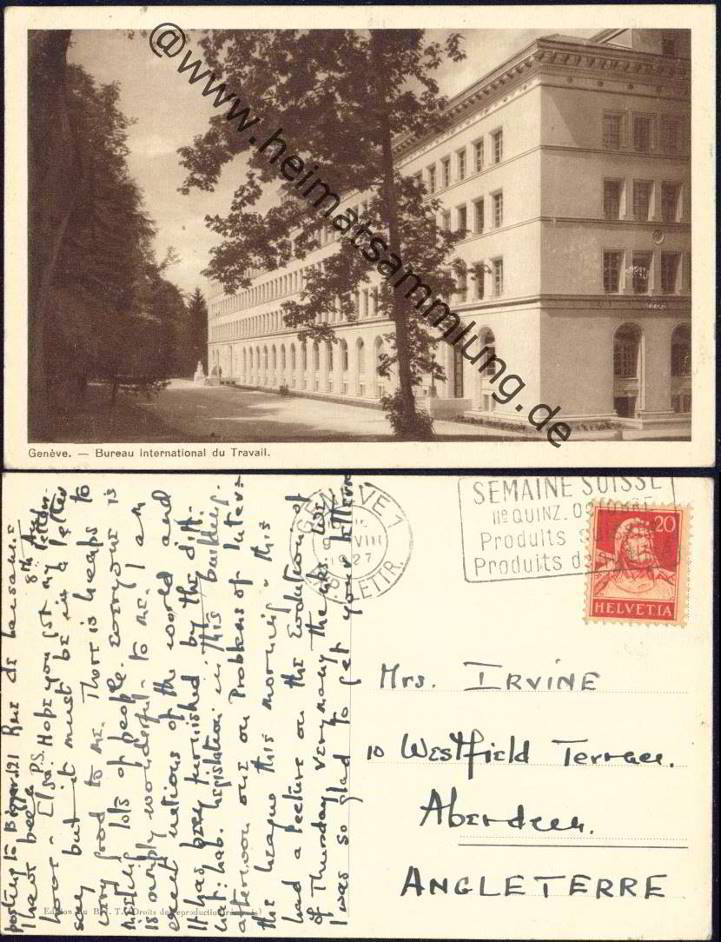 @www.heimatsammlung.de
Genève. — Bureau International du Travail.
GENÈVE 1
VIII
1927
EXP. LETTR.
SEMAINE SUISSE
IIe QUINZ. OCTOBRE
Produits
Produits
20
HELVETIA
Mrs. IRVINE
10 Westfield Terrace.
Aberdeen.
ANGLETERRE
121 Rue de Lausanne
8th Aug
P.S. Hope you got my letter
posting to
I have been
say but it must be in a letter
very good to me. There is heaps to
lots of people. Everyone is
is simply wonderful to me. I am
nations of the world and
It has been furnished by the diff.
nat: Lab. Legislation in this building.
afternoon one on Problems of Inter-
the League this morning – this
had a lecture on the Evolution of
of Thursday very many thanks. We
I was so glad to get your letter
Edition du B. I. T. (Droits de reproduction réservés)